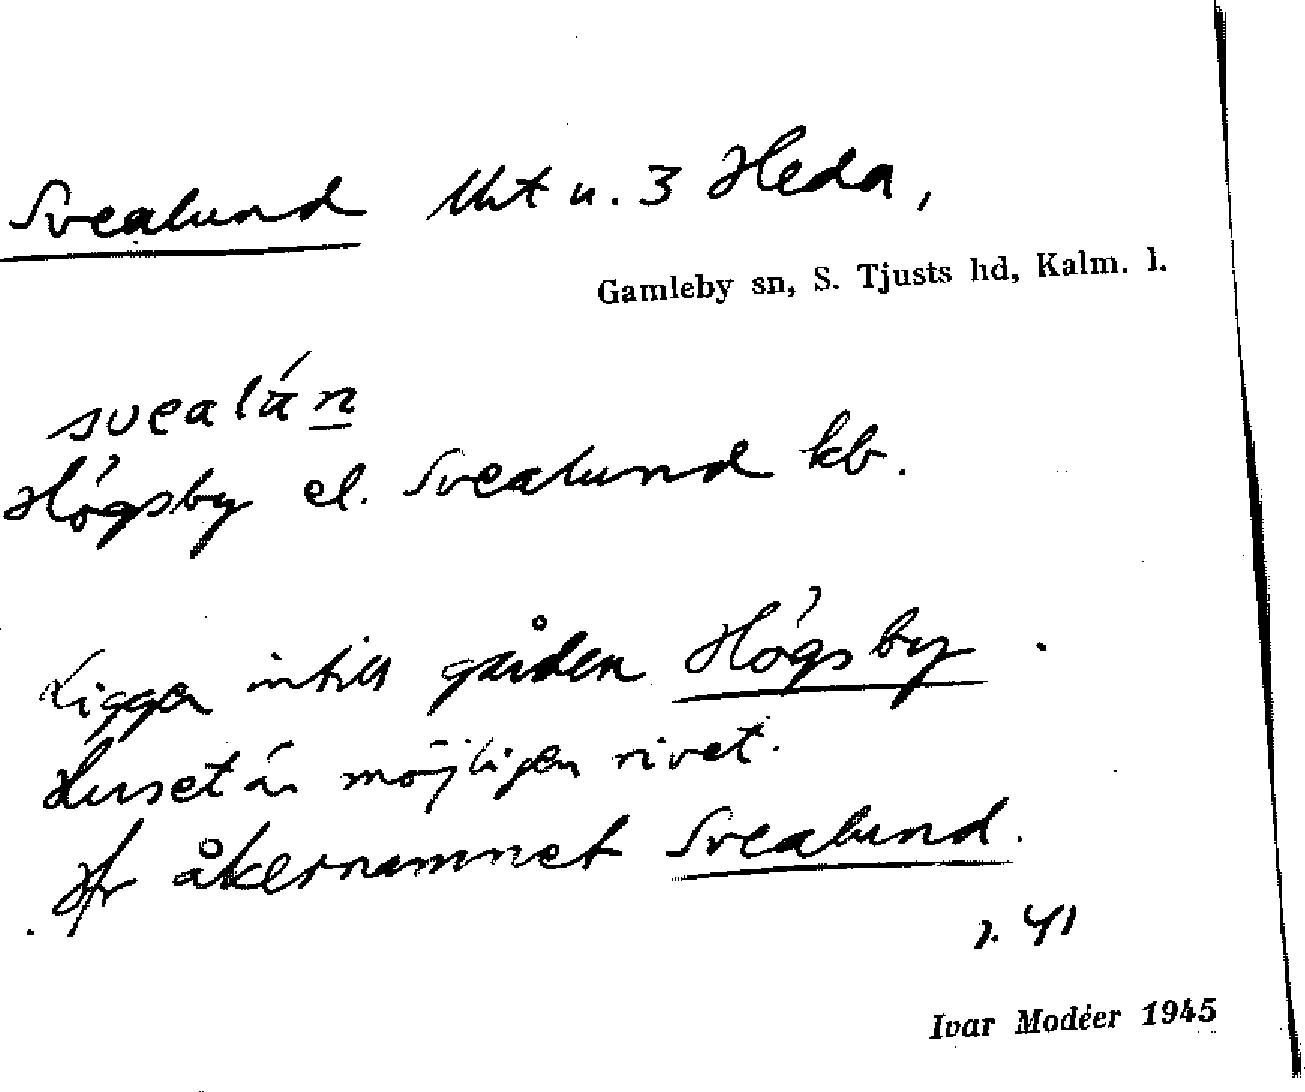 Svealund lht u. 3 Heda,
Gamleby sn, S. Tjusts hd, Kalm. l.
svealán
Högsby el. Svealund kb.
Ligger intill gården Högsby.
Huset är möjligen rivet.
Jfr åkernamnet Svealund.
s. 41
Ivar Modéer 1945